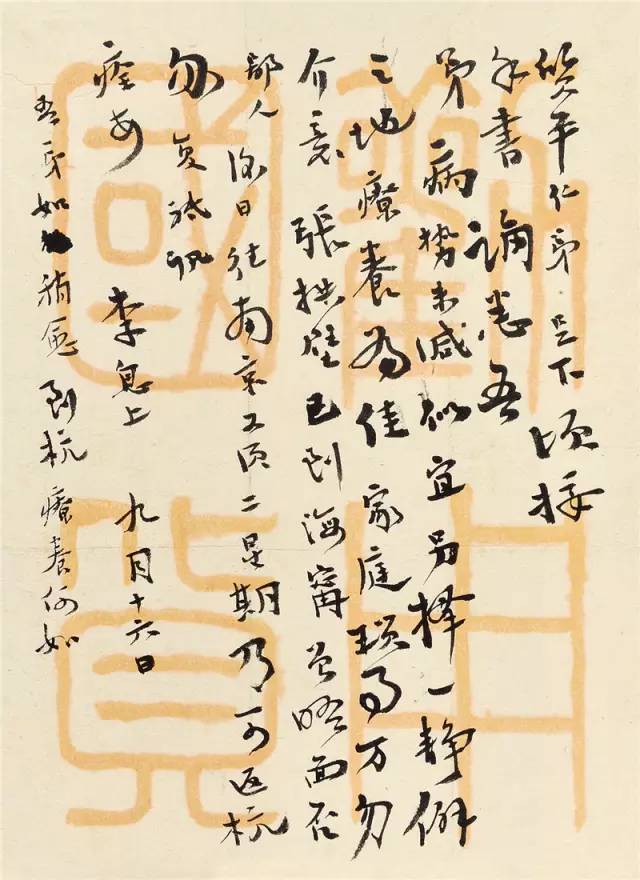 質平仁弟足下頃接
手書誦悉吾
弟病勢未減似宜另擇一靜僻
之地療養為佳家庭瑣事万勿
介意張拱璧已到海甯曾晤面否
鄙人後日往南京又須二星期乃可返杭
匆复祇訊
痊安 李息上 九月十六日
吾弟如稍愈到杭療養何如
用
國貨